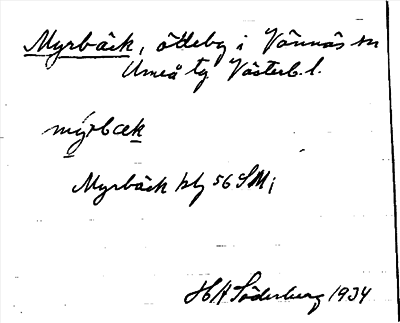 Myrbäck, ödeby i Vännäs sn
Umeå tg Västerb. l.
my̱rbæḵ
Myrbäck kbg 56 SMi
HA Söderberg 1934